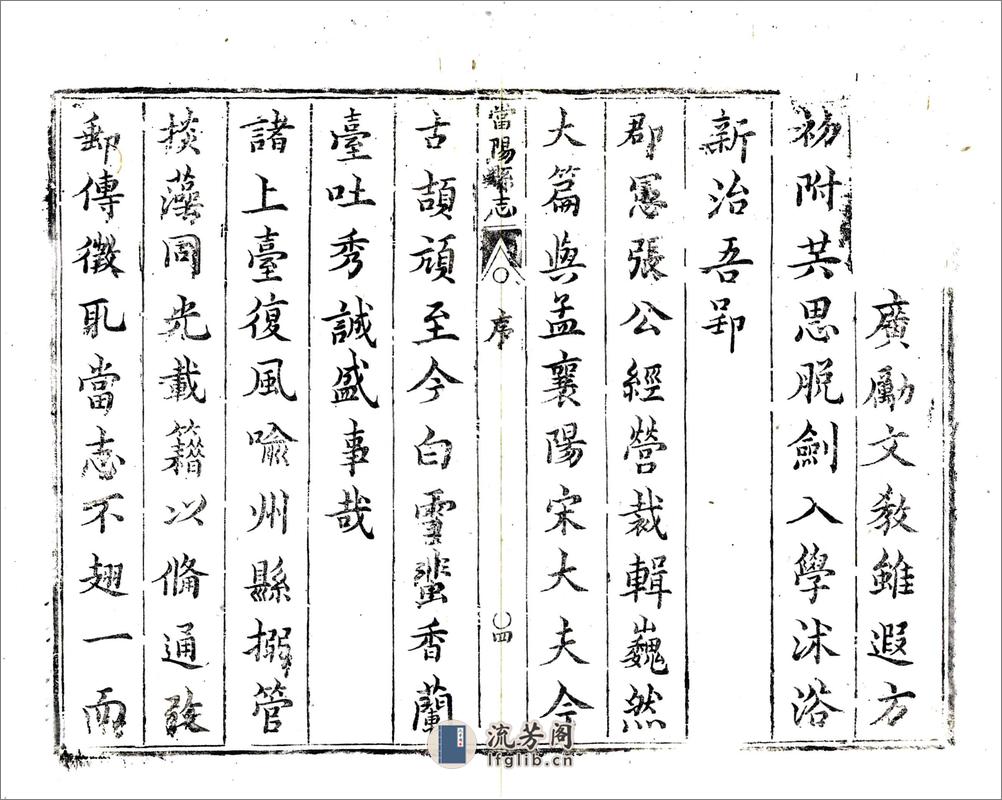 廣勵文教雖遐方
初附共思脫劍入學沐浴
新治吾郢
郡憲張公經營裁輯巍然
大篇與孟襄陽宋大夫今
當陽縣志
序
四
古頡頏至今白雪蜚香蘭
臺吐秀誠盛事哉
諸上臺復風喻州縣搦管
掞藻同光載籍以備通政
郵傳徵取當志不翅一而
流芳阁
lfglib.cn